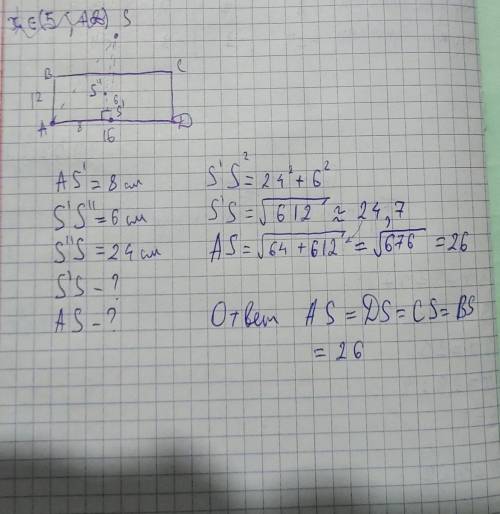 S
B C
12 S'' 6 S'
A 8 D
16
AS' = 8 см
S'S'' = 6 см
S''S = 24 см
S'S - ?
AS - ?
S'S² = 24² + 6²
S'S = √612 ≈ 24,7
AS = √64 + 612 = √676 = 26
Ответ AS = DS = CS = BS
= 26